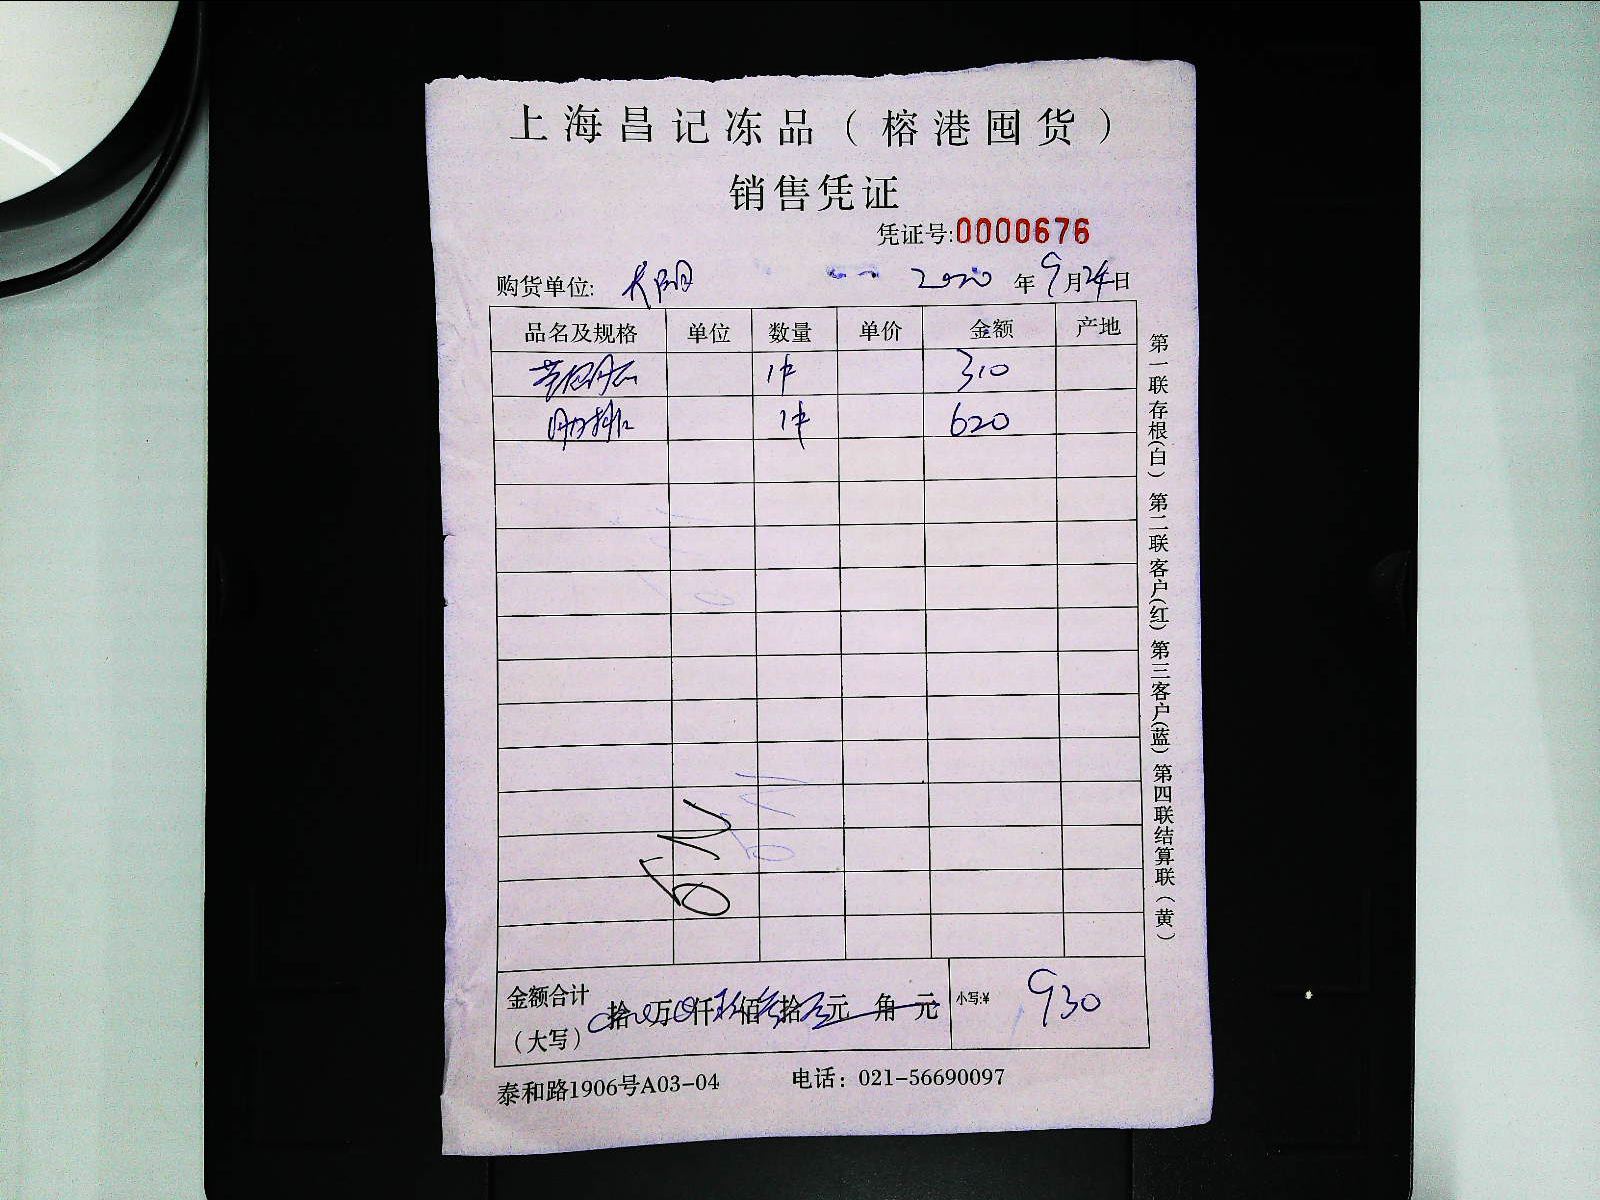 上海昌记冻品（榕港囤货）
销售凭证
凭证号:0000676
购货单位: 2020 年 9 月 24 日
品名及规格 单位 数量 单价 金额 产地
1件 310
肋排 1件 620
金额合计（大写） 拾 万 仟 玖佰叁拾元 角 元 小写:¥ 930
泰和路1906号A03-04 电话：021-56690097
第一联存根（白） 第二联客户（红） 第三客户（蓝） 第四联结算联（黄）